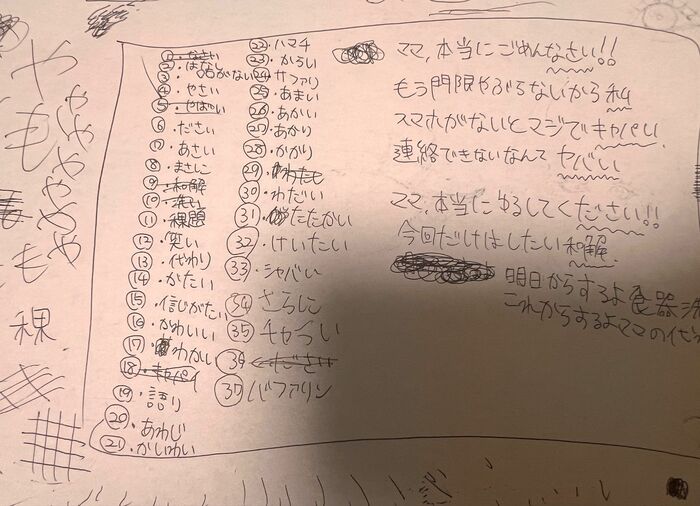 や
や
や
も
や
や
や
や
も
①・なさい
②・はなし
③・がない
④・やさい
⑤・やばい
⑥・ださい
⑦・あさい
⑧・まさしこ
⑨・和解
⑩・洗い
⑪・課題
⑫・笑い
⑬・代わり
⑭・かたい
⑮・信じがたい
⑯・かわいい
⑰・わかい
⑱・キャパイ
⑲・語り
⑳・あわじ
㉑・かいわい
㉒・ハマチ
㉓・からい
㉔・サファリ
㉕・あまい
㉖・あかい
㉗・あかり
㉘・かかり
㉙・
㉚・わだい
㉛・たたかい
㉜・けいたい
㉝・シャバい
㉞・さらに
㉟・チャラい
㊱・ださい
㊲・バファリン
ママ,本当にごめんなさい!!
もう門限やぶらないから私
スマホがないとマジでキャパい
連絡できないなんてヤバい
ママ,本当にゆるしてください!!
今回だけはしたい和解
明日からするよ食器洗
これからするよママの代